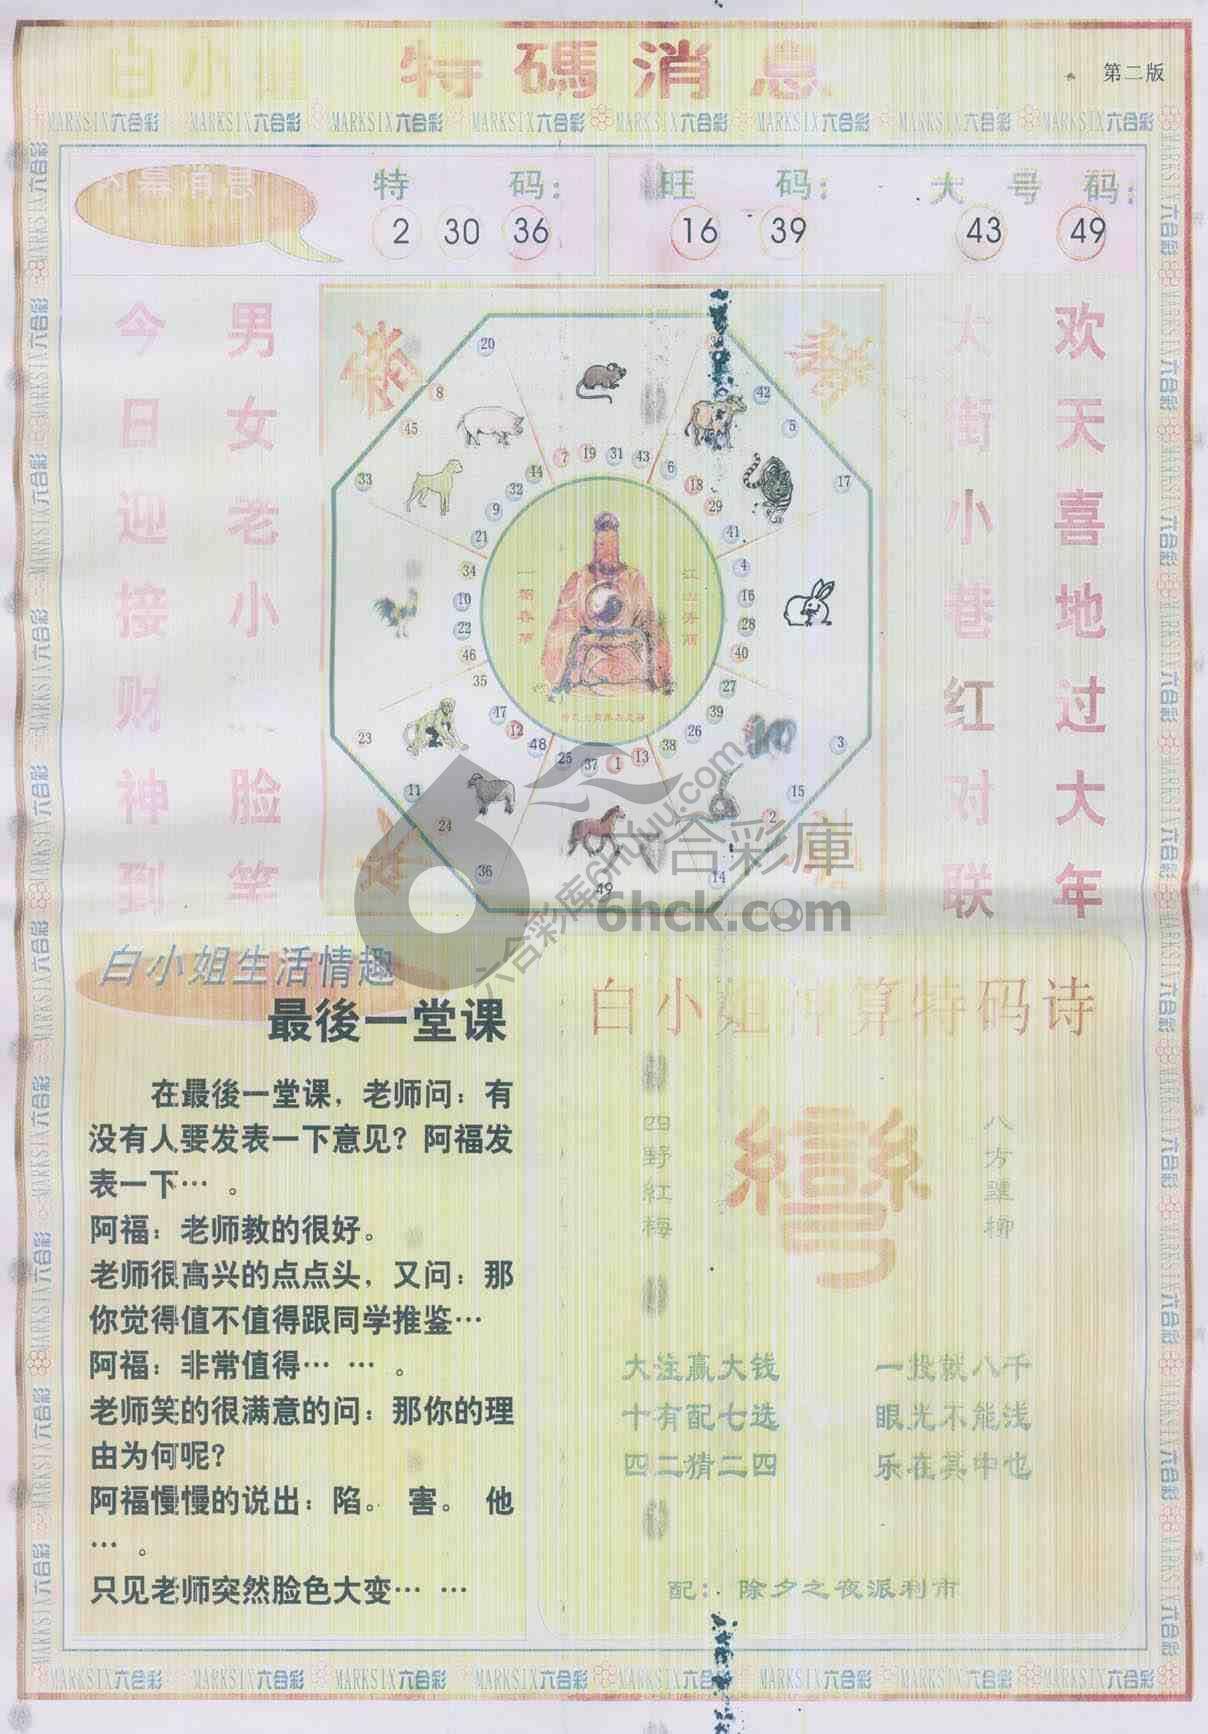 白小姐 特碼消息
第二版
MARKSIX六合彩 MARKSIX六合彩 MARKSIX六合彩 MARKSIX六合彩 MARKSIX六合彩 MARKSIX六合彩 MARKSIX六合彩 MARKSIX六合彩
内幕消息
特码:
2 30 36
旺码:
16 39
大号码:
43 49
欢天喜地过大年
大街小巷红对联
男女老小
脸笑
今日迎接财神到
20
8
45
33
42
5
17
7 19 31 43
6 18 29 41
4 16 28 40
27 39 26 38
3
15
2
14
13 1 37 25
49
48 12 47 35
36
24
11
23
46 22 10 34
21 9 32 44
六合彩库6hcku.com
六合彩庫
6hck.com
白小姐生活情趣
最後一堂课
在最後一堂课，老师问：有
没有人要发表一下意见？阿福发
表一下…。
阿福：老师教的很好。
老师很高兴的点点头，又问：那
你觉得值不值得跟同学推鉴…
阿福：非常值得… …。
老师笑的很满意的问：那你的理
由为何呢？
阿福慢慢的说出：陷。 害。 他
…。
只见老师突然脸色大变… …
白小姐 算特码诗
彎
八方 柳
四野紅梅
大注赢大钱 一投就八千
十有配七选 眼光不能浅
四二猜二四 乐在其中也
配：除夕之夜派利市
MARKSIX六合彩 MARKSIX六合彩 MARKSIX六合彩 MARKSIX六合彩 MARKSIX六合彩 MARKSIX六合彩 MARKSIX六合彩 MARKSIX六合彩